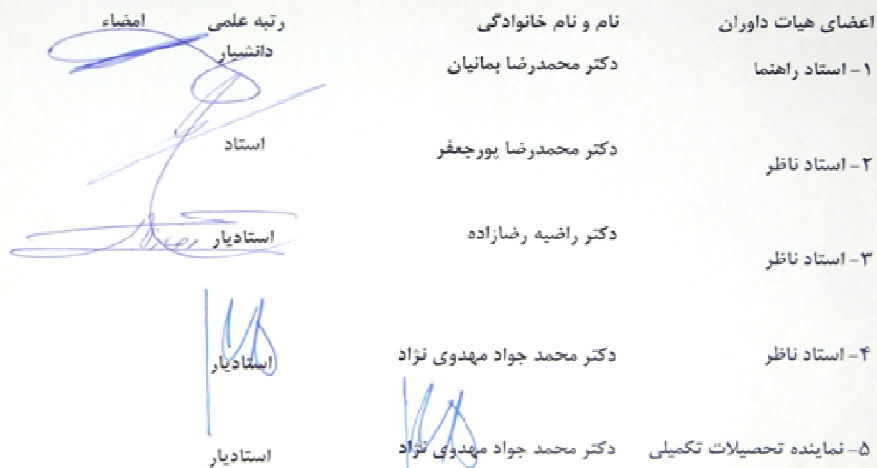 اعضای هیات داوران نام و نام خانوادگی رتبه علمی امضاء
۱- استاد راهنما دکتر محمدرضا بمانیان دانشیار
۲- استاد ناظر دکتر محمدرضا پورجعفر استاد
۳- استاد ناظر دکتر راضیه رضازاده استادیار
۴- استاد ناظر دکتر محمد جواد مهدوی نژاد استادیار
۵- نماینده تحصیلات تکمیلی دکتر محمد جواد مهدوی نژاد استادیار